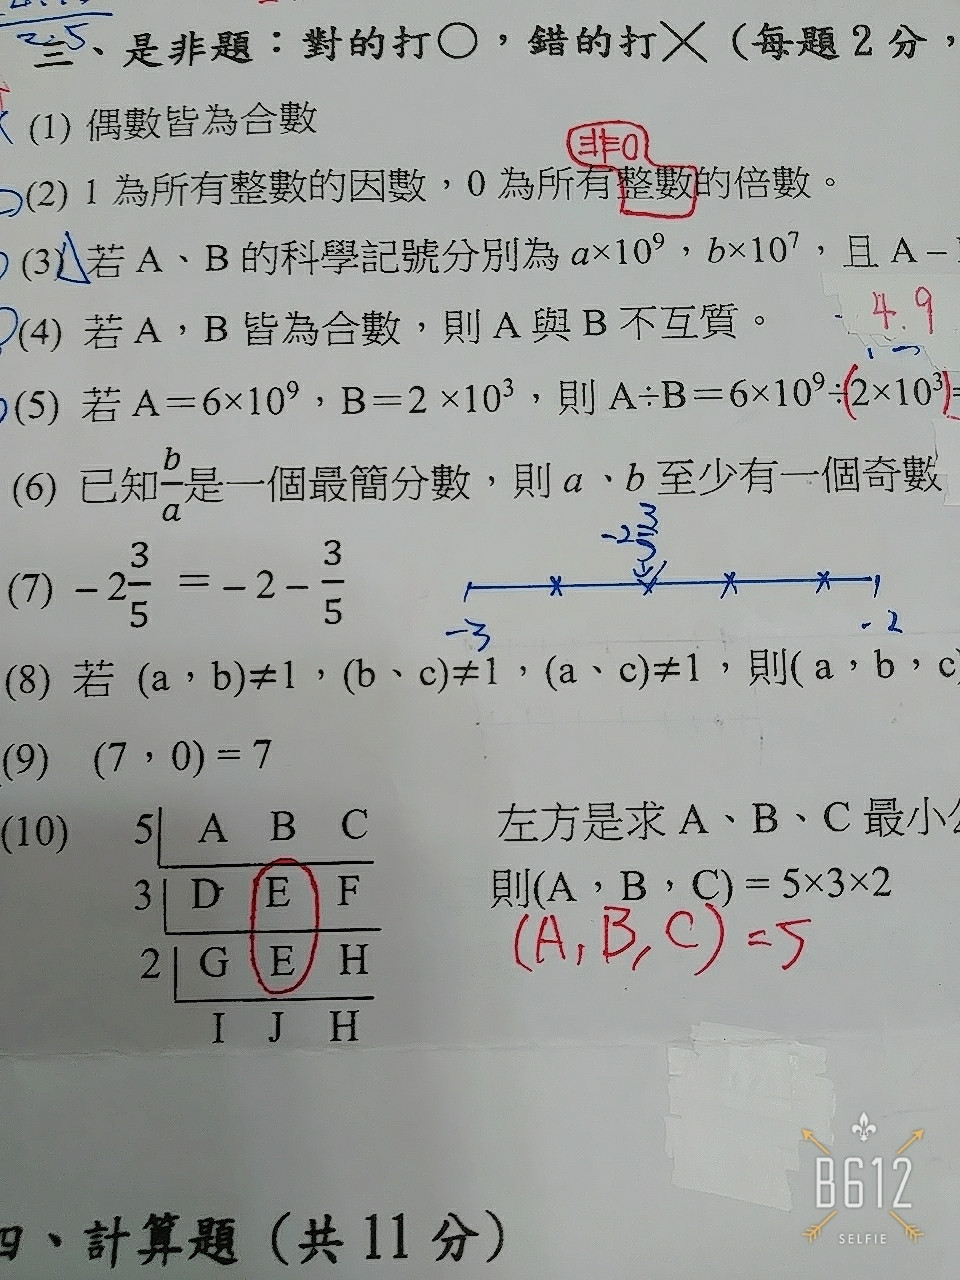 2.5
三、是非題：對的打○，錯的打╳（每題2分，
(1) 偶數皆為合數
非0
(2) 1 為所有整數的因數，0 為所有整數的倍數。
(3) 若 A、B 的科學記號分別為 a×10⁹，b×10⁷，且 A－
4.9
(4) 若 A，B 皆為合數，則 A 與 B 不互質。
(5) 若 A＝6×10⁹，B＝2 ×10³，則 A÷B＝6×10⁹÷(2×10³)=
(6) 已知b/a是一個最簡分數，則 a、b 至少有一個奇數
-2 3/5
(7) －2 3/5 ＝－2－ 3/5
-3 -2
(8) 若 (a，b)≠1，(b、c)≠1，(a、c)≠1，則( a，b，c)
(9) (7，0) = 7
(10) 5 A B C 左方是求 A、B、C 最小公
3 D E F 則(A，B，C) = 5×3×2
(A, B, C) = 5
2 G E H
I J H
B612
SELFIE
四、計算題（共 11 分）